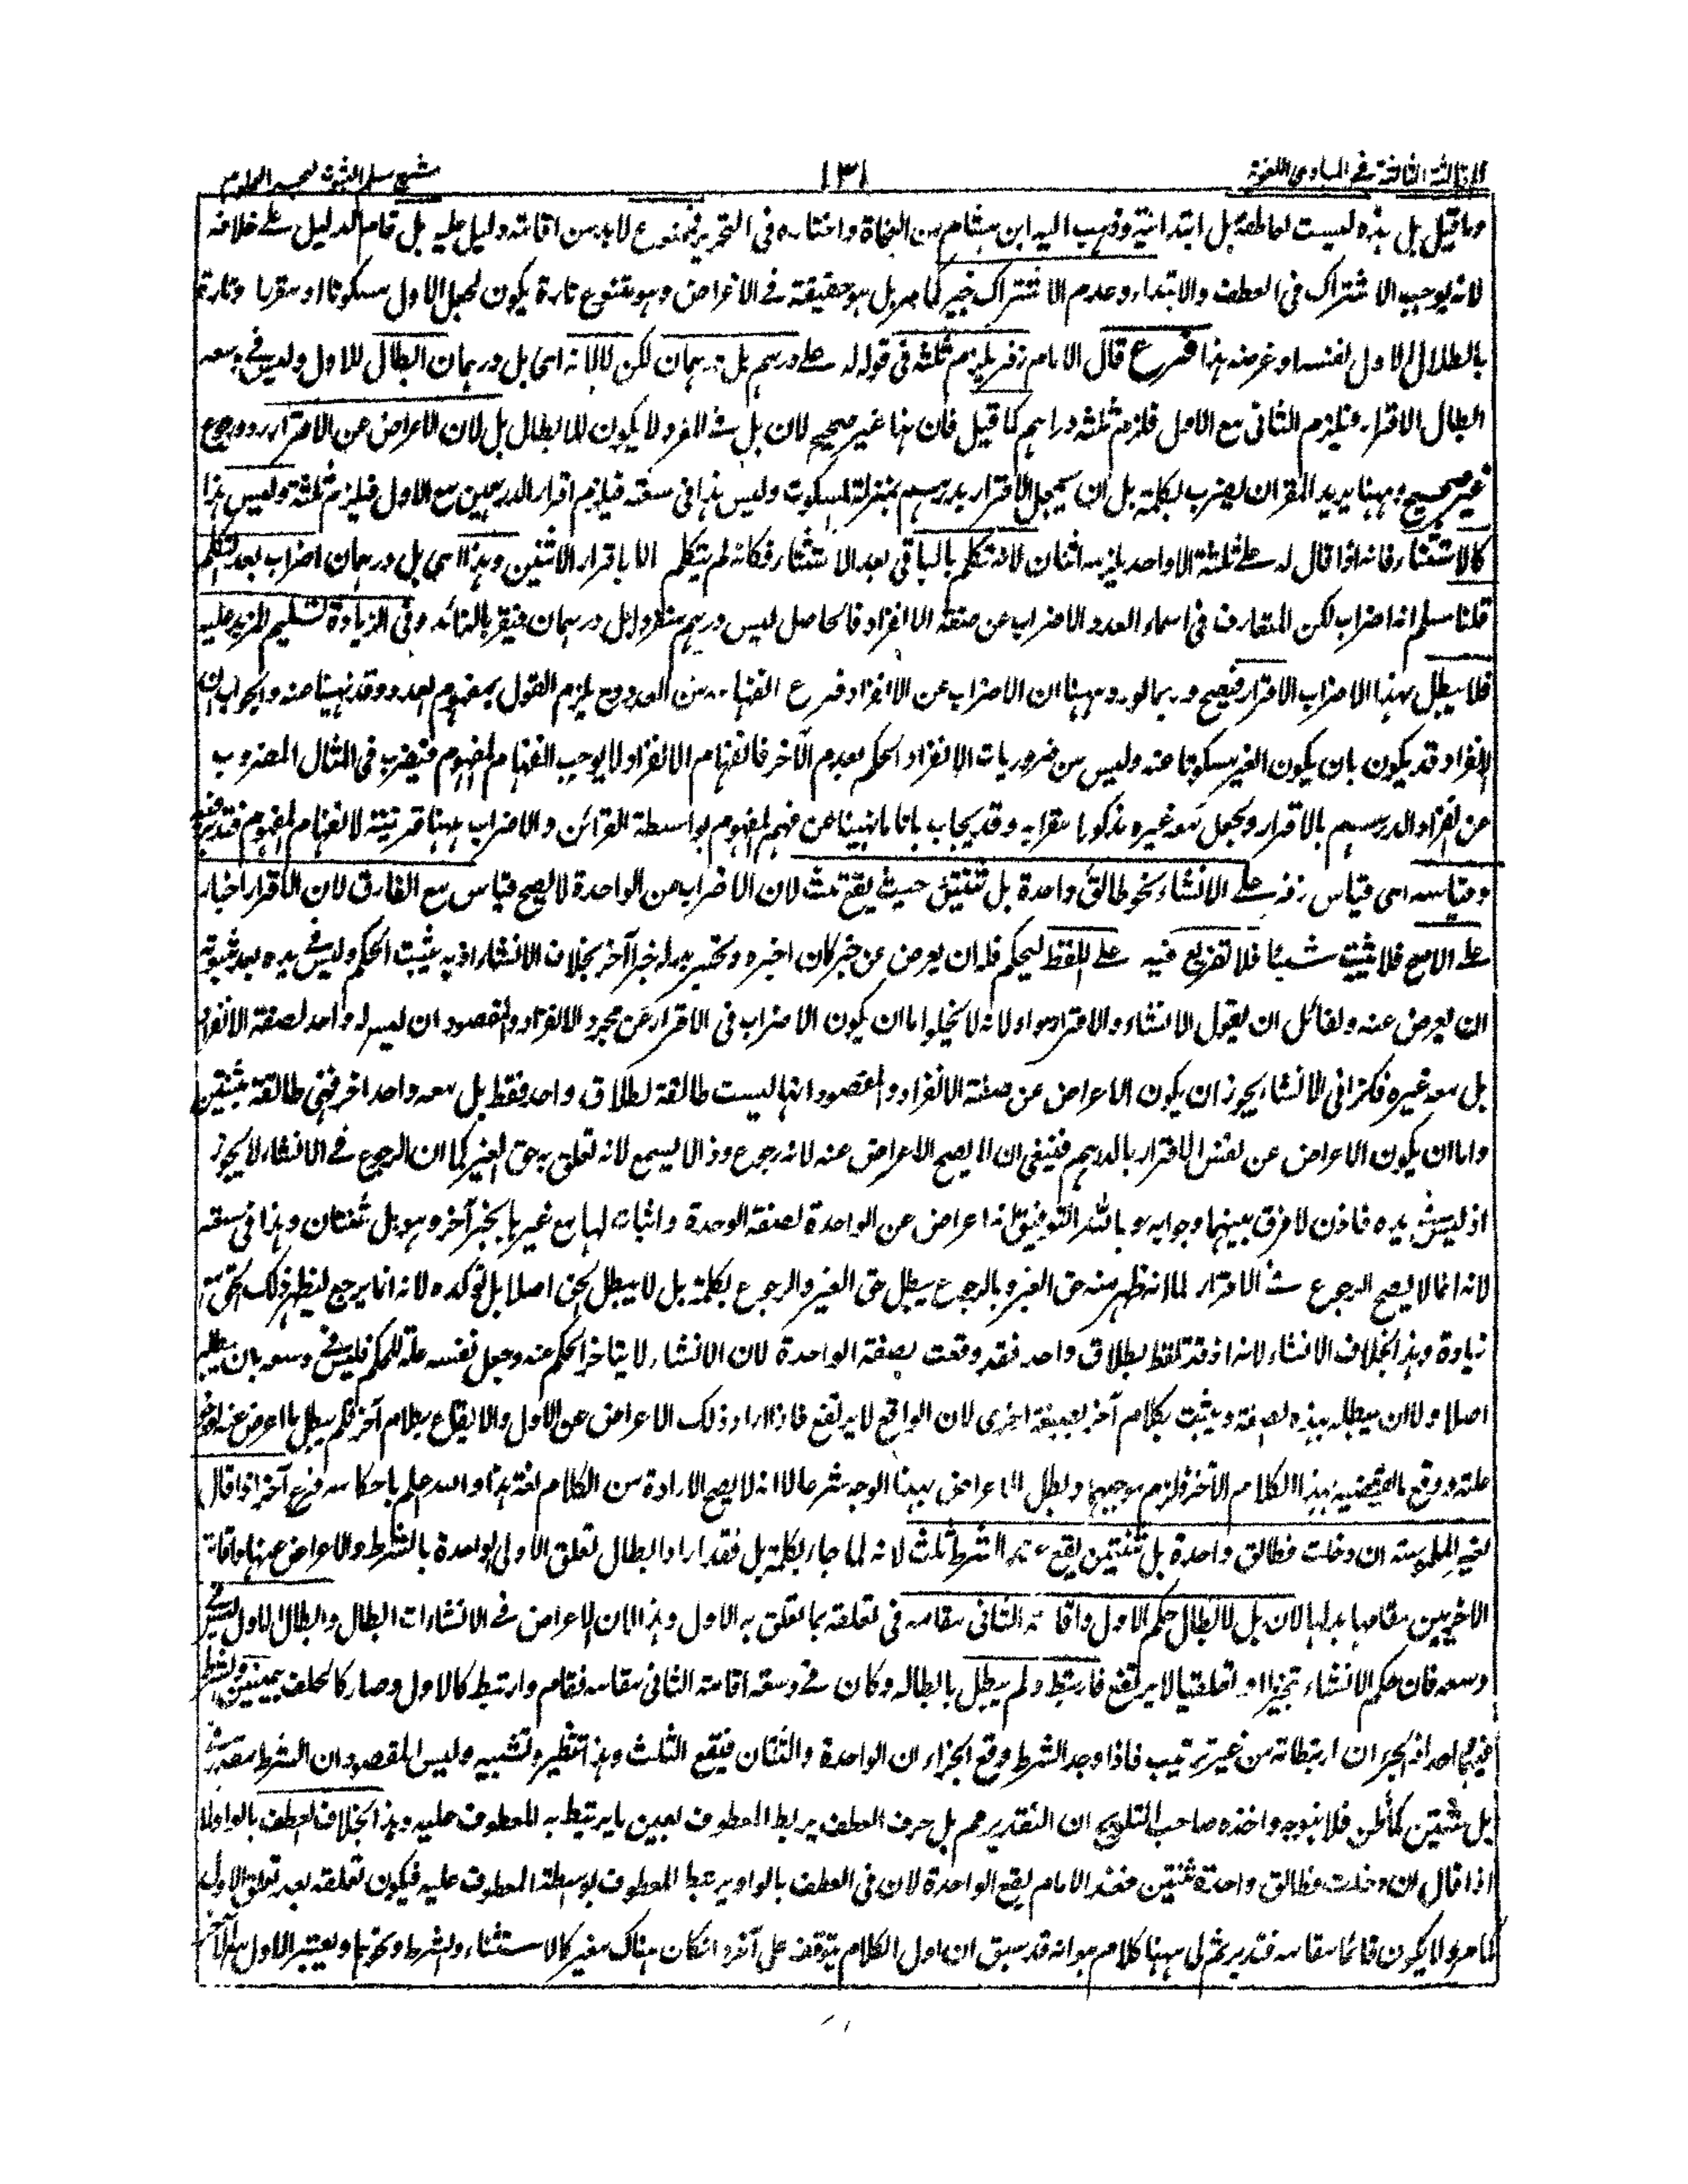 المقالة الثالثة في المبادي اللغوية ١٣١ شرح مسلم الثبوت لبحر العلوم
وما قيل بل هذه ليست لعاطفة بل ابتدائية وذهب اليه ابن هشام من النحاة واختاره في التحرير فممنوع لابد من اقامته دليل عليه بل قام الدليل على خلافه
لانه يوجب الاشتراك في العطف والابتداء وعدم الاشتراك خير كما مر بل هو حقيقة في الاعراض وهو متنوع تارة يكون لجعل الاول مسكوتا او مقررا وتارة
بابطال الاول نفسه او غرضه هذا فرع قال الامام زفر يلزم ثلثة في قوله له على درهم بل درهمان لكن لا لانه اي بل درهمان ابطال للاول وليس في وسعه
ابطال الاقرار ويلزم الثاني مع الاول فلزم ثلثة دراهم كما قيل فان هذا غير صحيح لان بل في المفرد لا يكون للابطال بل لان الاعراض عن الاقرار رد ورجوع
غير صحيح وههنا يريد المقر ان يضرب بكلمة بل ان يجعل الاقرار بدرهم بمنزلة المسكوت وليس هذا في سعته فيلزم اقرار الدرهمين مع الاول فيلزم ثلثة وليس هذا
كالاستثناء فانه اذا قال له على ثلثة الا واحد يلزمه اثنان لانه تكلم بالباقي بعد الاستثناء فكانه لم يتكلم الا باقرار الاثنين وهذا اي بل درهمان اضراب بعد التكلم
قلنا مسلم انه اضراب لكن المتعارف في اسماء العدد الاضراب عن صفة الانفراد فالحاصل ليس درهم منفردا بل درهمان فيقر بالزائد وفي الزيادة تسليم المزيد عليه
فلا يبطل بهذا الاضراب الاقرار فيصح وربما يورد ههنا ان الاضراب عن الانفراد فرع انفهامه من العدد ومع يلزم القول بمفهوم العدد وقد نهينا عنه والجواب ان
الانفراد قد يكون بان يكون الغير مسكوتا عنه وليس من ضروريات الانفراد الحكم بعدم الآخر فانفهام الانفراد لا يوجب انفهام المفهوم فيضرب في المثال المضروب
عن انفراد الدرهم بالاقرار ويجعل معه غيره مذكورا مقرا به وقد يجاب بانا ما نهينا عن فهم المفهوم بواسطة القرائن والاضراب ههنا قرينة لانفهام المفهوم فتدبر فيه
وقياسه اي قياس زفر على الانشاء نحو طالق واحدة بل ثنتين حيث يقع ثلث لان الاضراب من الواحدة لا يصح قياس مع الفارق لان الاقرار اخبار
على الاصح فلا يثبت شيئا فلا تفريع فيه على اللفظ ليحكم فله ان يعرض عن خبر كان اخبره ويخبر بدله خبرا آخر بخلاف الانشاء اذ به يثبت الحكم وليس في يده بعد ثبوته
ان يعرض عنه ولقائل ان يقول الانشاء والاقرار سواء لانه لا يخلو اما ان يكون الاضراب في الاقرار عن مجرد الانفراد والمقصود ان ليس له واحد لصفة الانفراد
بل معه غيره فكذا في الانشاء يجوز ان يكون الاعراض عن صفة الانفراد والمقصود انها ليست طالقة لطلاق واحد فقط بل معه واحد اخر فهي طالقة بثنتين
واما ان يكون الاعراض عن نفس الاقرار بالدرهم فينبغي ان لا يصح الاعراض عنه لانه رجوع وذا لا يسمع لانه تعلق به حق الغير كما ان الرجوع في الانشاء لا يجوز
اذ ليس في يده فاذن لا فرق بينهما وجوابه وبالله التوفيق انه اعراض عن الواحدة لصفة الوحدة واثبات لها مع غيرها بخبر آخر وهو بل ثنتان وهذا في سعته
لانه انما لا يصح الرجوع في الاقرار لما انه ظهر منه حق الغير وبالرجوع يبطل حق الغير والرجوع بكلمة بل لا يبطل الحق اصلا بل توكده لانه انما يرجع ليظهر ذلك الحق مع
زيادة وهذا بخلاف الانشاء لانه اذ قد تلفظ بطلاق واحد فقد وقعت بصفة الواحدة لان الانشاء لا يتاخر الحكم عنه وجعل نفسه علة للحكم فليس في وسعه بان يبطله
اصلا ولا ان يبطله بهذه الصفة ويثبت بكلام آخر بصيغة اخرى لان الواقع لا يرتفع فاذا اراد ذلك الاعراض عن الاول والايقاع بكلام آخر لم يبطل ما اعرض عنه لوقوع
علته ووقع ما يقتضيه بهذا الكلام الآخر فلزم موجبهما وبطل الاعراض بهذا الوجه شرعا لا انه لا يصح الارادة من الكلام لغة هذا والله اعلم باحكامه فرع آخر اذا قال
لغير الملموسة ان دخلت فطالق واحدة بل ثنتين يقع عند الشرط ثلث لانه لما جاء بكلمة بل فقد اراد ابطال تعلق الاولى الواحدة بالشرط والاعراض عنها واقامة
الاخريين مقامها بدلها لان بل لابطال حكم الاول واقامة الثاني مقامه في تعلقه بما تعلق به الاول وهذا لان الاعراض في الانشاءات ابطال وابطال الاول ليس في
وسعه فان حكم الانشاء تنجيزا او تعليقا لا يرتفع فارتبط ولم يبطل بابطاله وكان في وسعه اقامة الثاني مقامه فقام وارتبط كالاول وصار كالحلف بيمينين
فيهما احد الجزاءان ارتباطا من غير ترتيب فاذا وجد الشرط وقع الجزاءان الواحدة والثنتان فيقع الثلث وهذا تنظير وتشبيه وليس المقصود ان الشرط مقدر في
بل ثنتين كما ظن فلا يتوجه واخذه صاحب التلويح ان التقدير مم بل حرف العطف يربط المعطوف بعين ما يرتبط به المعطوف عليه وهذا بخلاف العطف بالواو لما
اذا قال ان دخلت فطالق واحدة وثنتين فعند الامام يقع الواحدة لان في العطف بالواو يرتبط المعطوف بواسطة المعطوف عليه فيكون تعلقه بعد تعلق الاول
كما مر ولا يكون قائما مقامه فتدبر ثم لي ههنا كلام هو انه قد سبق ان اول الكلام يتوقف على آخره ان كان هناك مغير كالاستثناء والشرط ونحوهما ويعتبر الاول مع الآخر